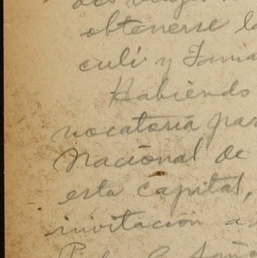 obtenerse l
culí y
Habiendo
vocatoria par
Nacional de
esta capital,
invitación a